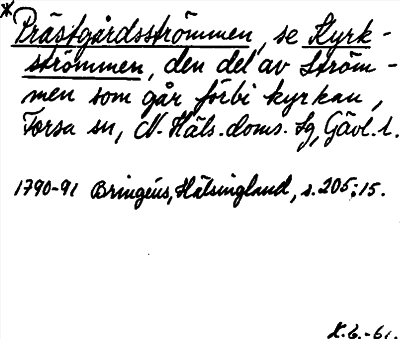 * Prästgårdsströmmen, se Kyrk-
strömmen, den del av Ström-
men som går förbi kyrkan,
Forsa sn, N. Häls. doms. Sg, Gävl. l.
1790-91 Bringéus, Hälsingland, s. 205:15.
K.E.-61.